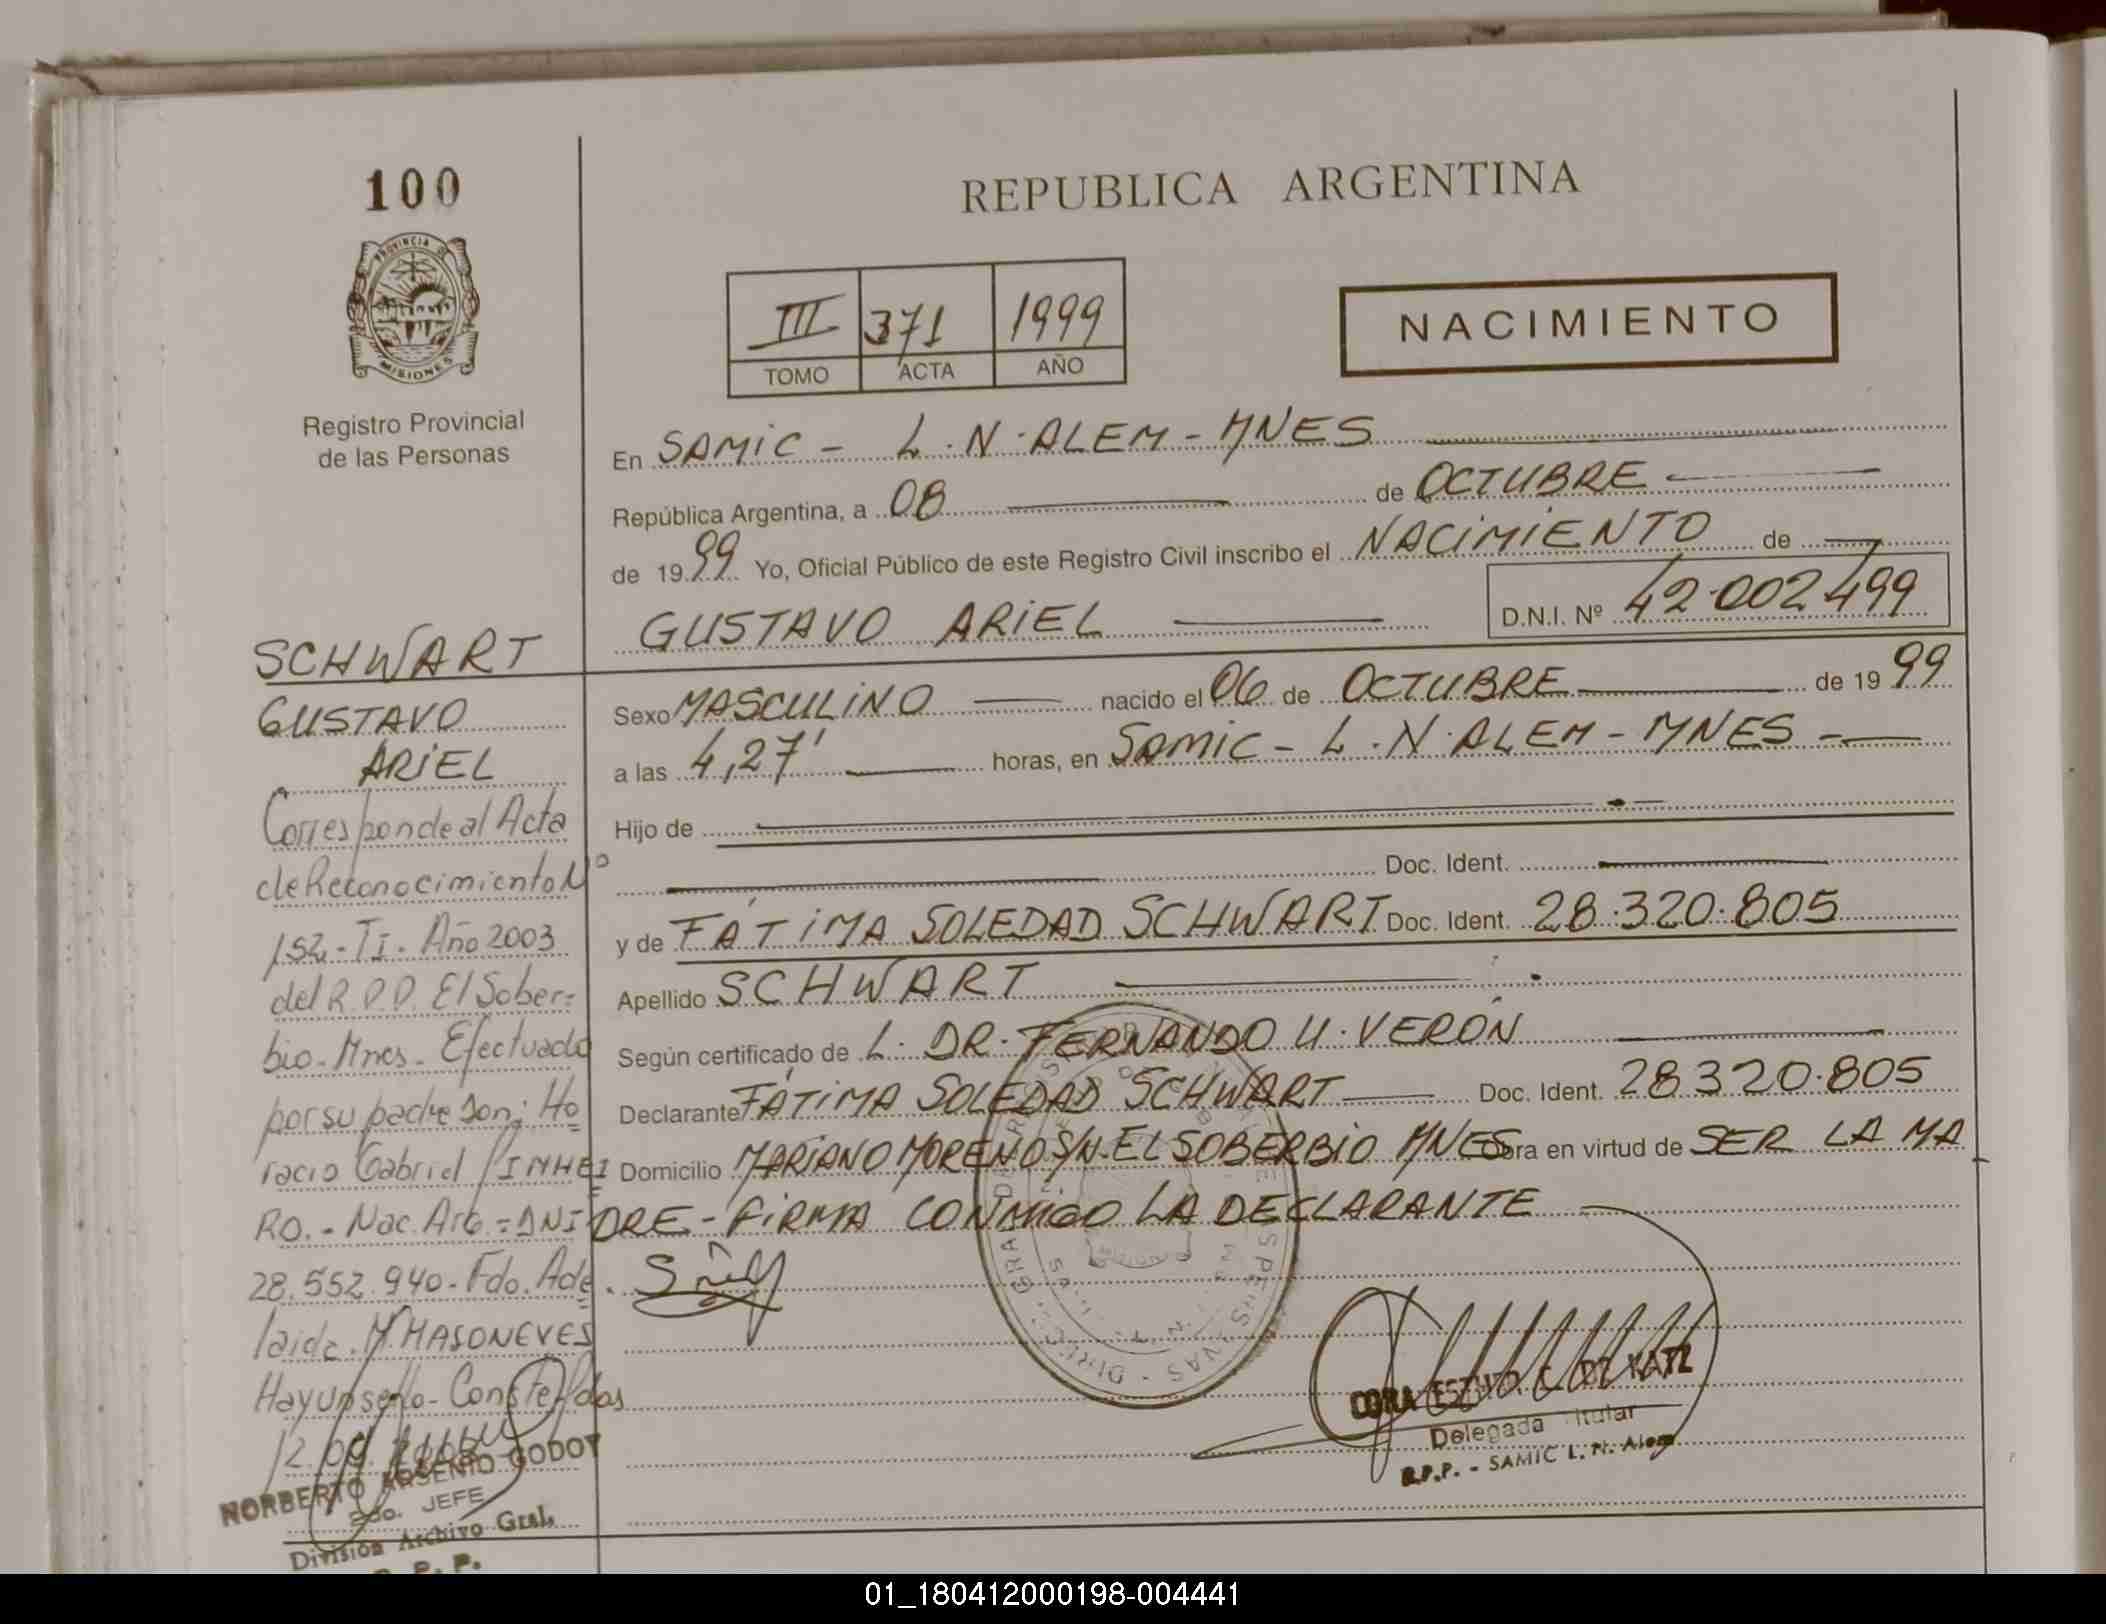 100
REPUBLICA ARGENTINA
PROVINCIA DE
MISIONES
Registro Provincial
de las Personas
III 371 1999
TOMO ACTA AÑO
NACIMIENTO
En SAMIC - L.N. ALEM - MNES
República Argentina, a 08 de OCTUBRE
de 1999 Yo, Oficial Público de este Registro Civil inscribo el NACIMIENTO de
GUSTAVO ARIEL D.N.I. Nº 42.002499
Sexo MASCULINO nacido el 06 de OCTUBRE de 1999
a las 4,27' horas, en SAMIC - L.N. ALEM - MNES -
Hijo de
Doc. Ident.
y de FÁTIMA SOLEDAD SCHWART Doc. Ident. 28.320.805
Apellido SCHWART
Según certificado de L. DR. FERNANDO U. VERÓN
Declarante FÁTIMA SOLEDAD SCHWART Doc. Ident. 28320.805
Domicilio MARIANO MORENO S/N. EL SOBERBIO MNES Obra en virtud de SER LA MA
DRE - FIRMA CONMIGO LA DECLARANTE
SCHWART
GUSTAVO
ARIEL
Corresponde al Acta
de Reconocimiento Nº
152 - TI. Año 2003
del R.P.P. El Sober=
bio - Mnes - Efectuado
por su padre Don: Ho
racio Gabriel PINHEI
RO. - Nac. Arg. = DNI
28.552.940 - Fdo. Ade
laida M. MASONEVES
Hay un sello - Conste Pdas
12.09.
NORBERTO ARSENIO GODOY
2do. JEFE
División Archivo Gral.
R. P. P.
DE KATZ
Delegada Titular
R.P.P. - SAMIC L. N. Alem
01_180412000198-004441